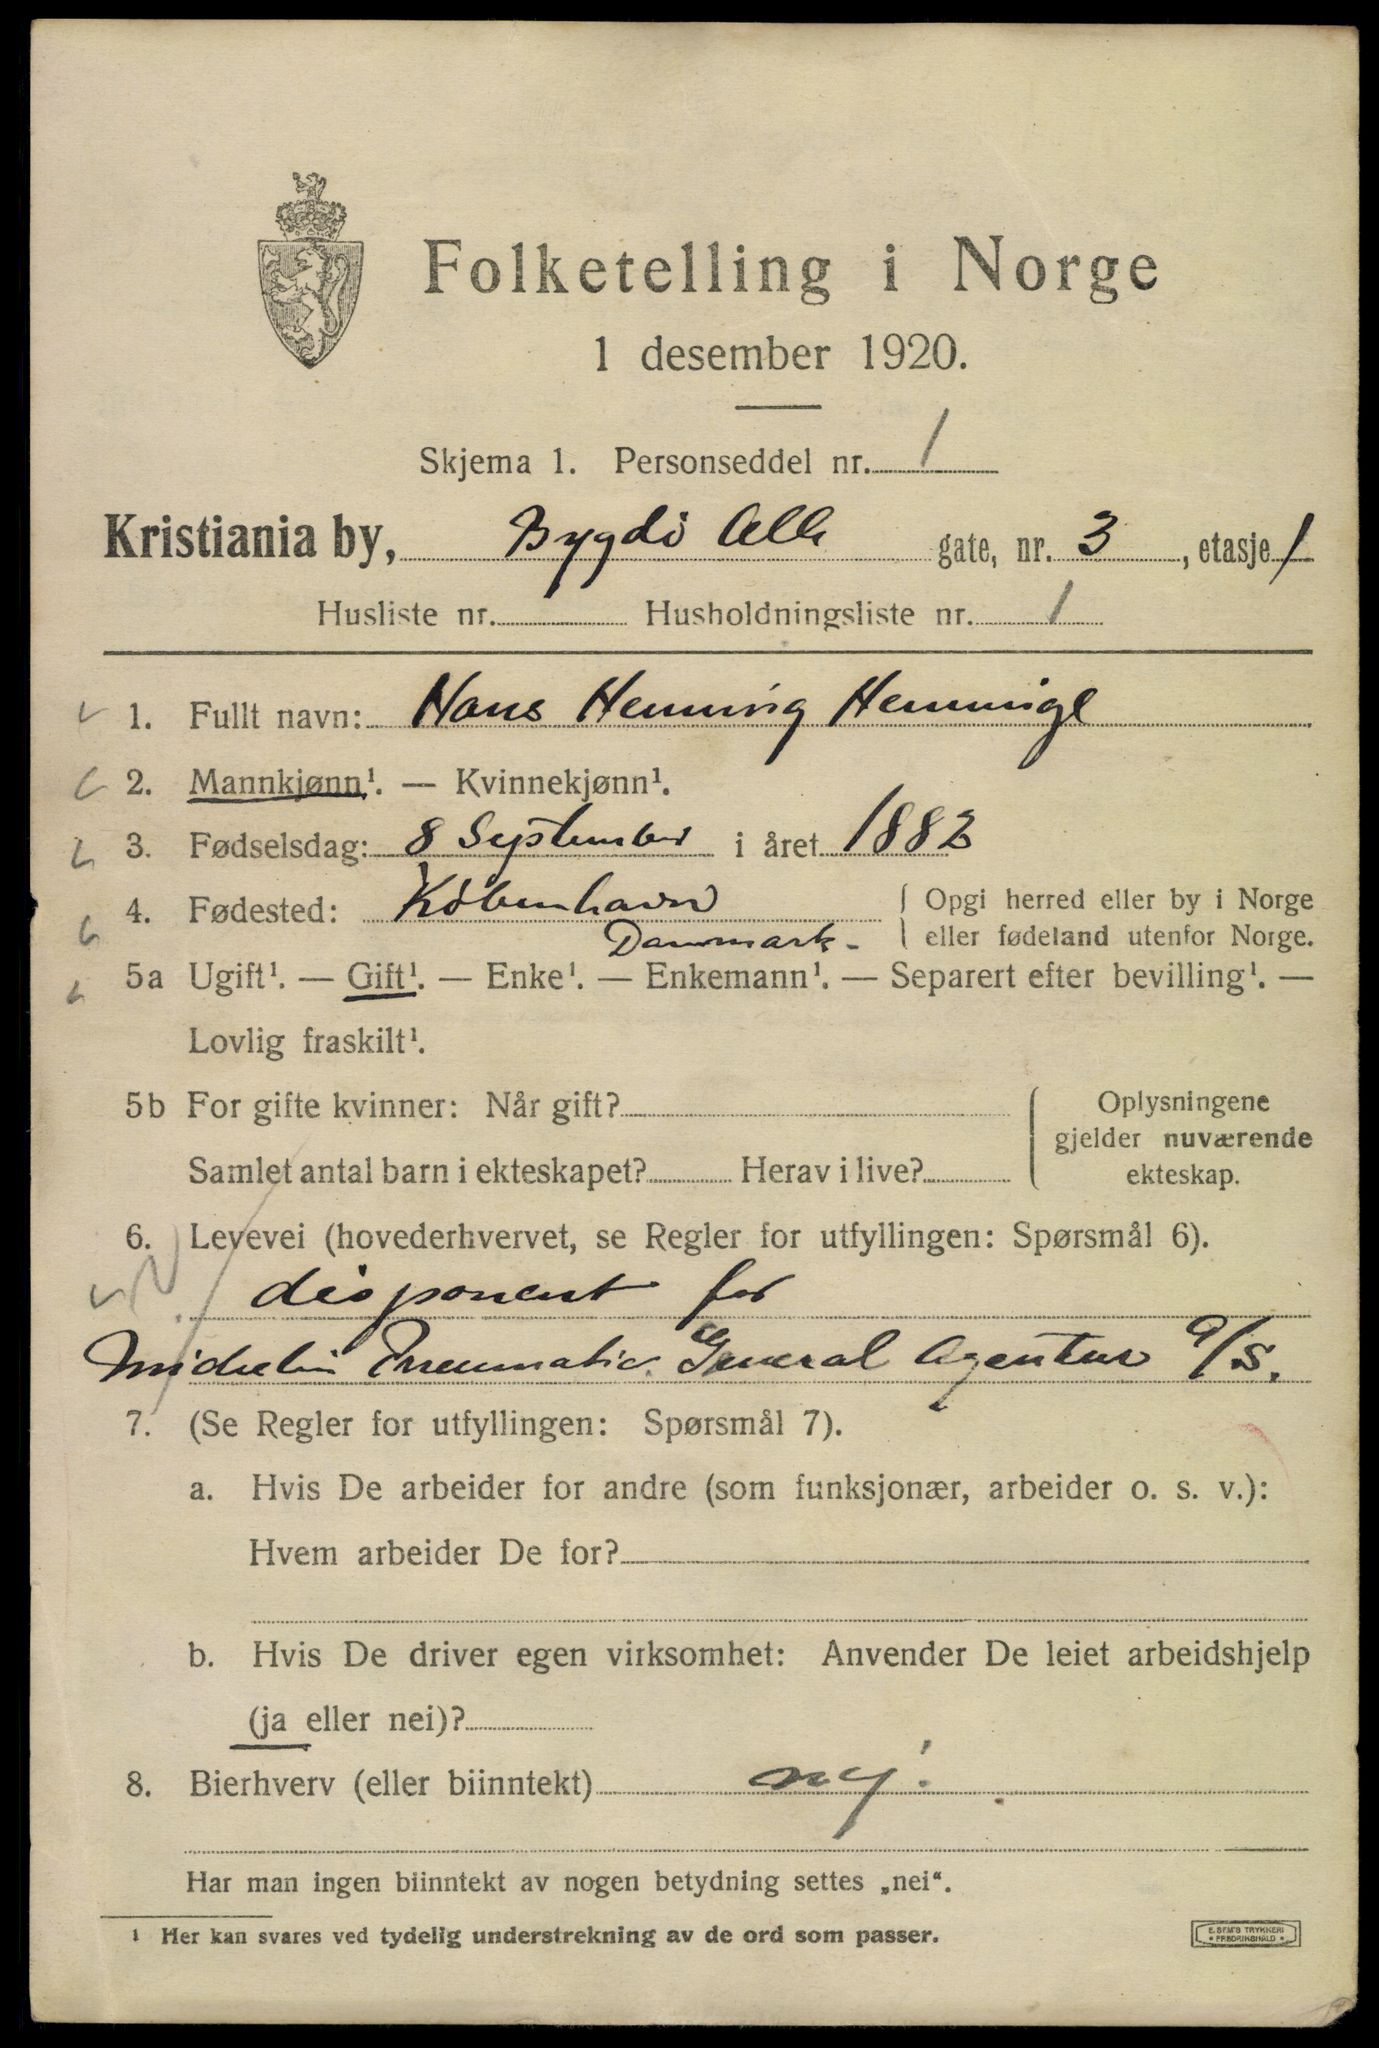 Folketelling i Norge
1 desember 1920.
Skjema 1. Personseddel nr. 1
Kristiania by, Bygdö Alle gate, nr. 3, etasje 1
Husliste nr. Husholdningsliste nr. 1
1. Fullt navn: Hans Henning
2. Mannkjønn¹. — Kvinnekjønn¹.
3. Fødselsdag: 8 September i året 1882
4. Fødested: København { Opgi herred eller by i Norge
Danmark. eller fødeland utenfor Norge.
5a Ugift¹. — Gift¹. — Enke¹. — Enkemann¹. — Separert efter bevilling¹. —
Lovlig fraskilt¹.
5b For gifte kvinner: Når gift? { Oplysningene
gjelder nuværende
Samlet antal barn i ekteskapet? Herav i live? ekteskap.
6. Levevei (hovederhvervet, se Regler for utfyllingen: Spørsmål 6).
disponent for
Michelin Pneumatic General Agentur A/S.
7. (Se Regler for utfyllingen: Spørsmål 7).
a. Hvis De arbeider for andre (som funksjonær, arbeider o. s. v.):
Hvem arbeider De for?
b. Hvis De driver egen virksomhet: Anvender De leiet arbeidshjelp
(ja eller nei)?
8. Bierhverv (eller biinntekt) nej.
Har man ingen biinntekt av nogen betydning settes „nei“.
¹ Her kan svares ved tydelig understrekning av de ord som passer.
E. SEM'S TRYKKERI
* FREDRIKSHALD *